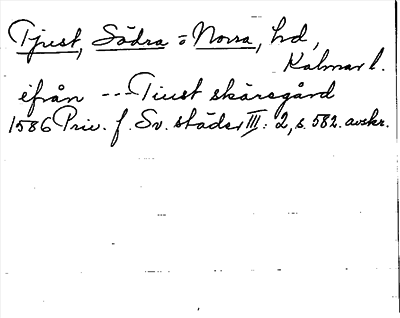 Tjust, Södra o Norra, hd,
Kalmar l.
ifrån --- Tiust skärsgård
1586 Priv. f. Sv. städer III: 2, s. 582. avskr.